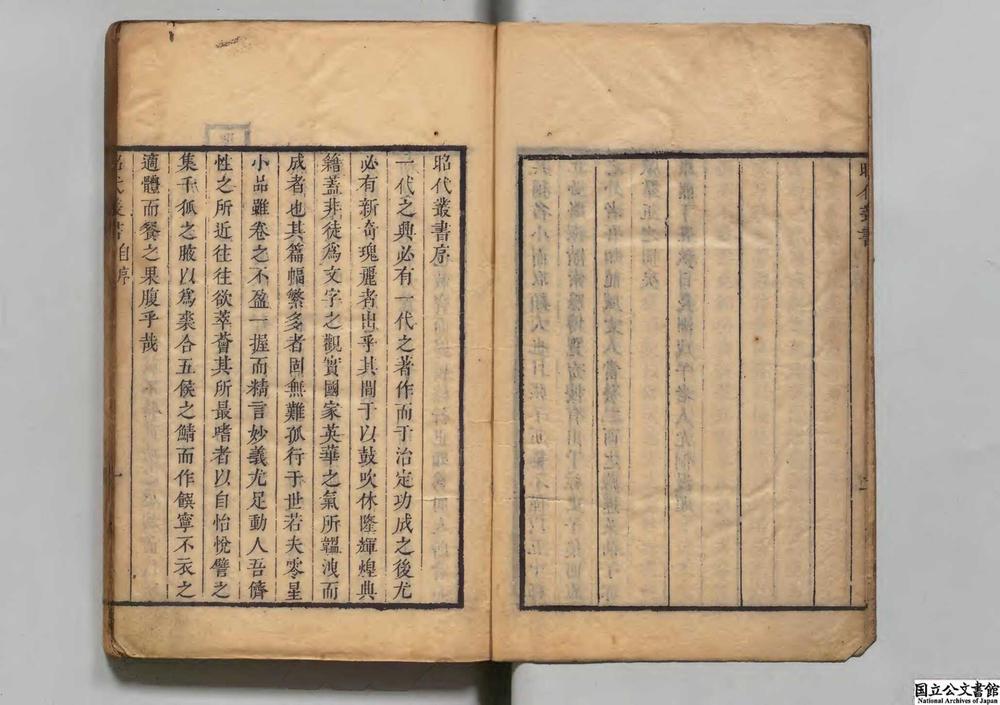 昭代叢書
昭代叢書序
一代之興必有一代之著作而于治定功成之後尤
必有新奇瑰麗者出乎其間于以鼓吹休隆輝煌典
籍蓋非徒爲文字之觀實國家英華之氣所韞洩而
成者也其篇幅繁多者固無難孤行于世若夫零星
小品雖卷之不盈一握而精言妙義尤足動人吾儕
性之所近往往欲萃薈其所最嗜者以自怡悅譬之
集千狐之腋以爲裘合五侯之鯖而作饌寧不衣之
適體而餐之果腹乎哉
昭代叢書 自序 一
国立公文書館
National Archives of Japan